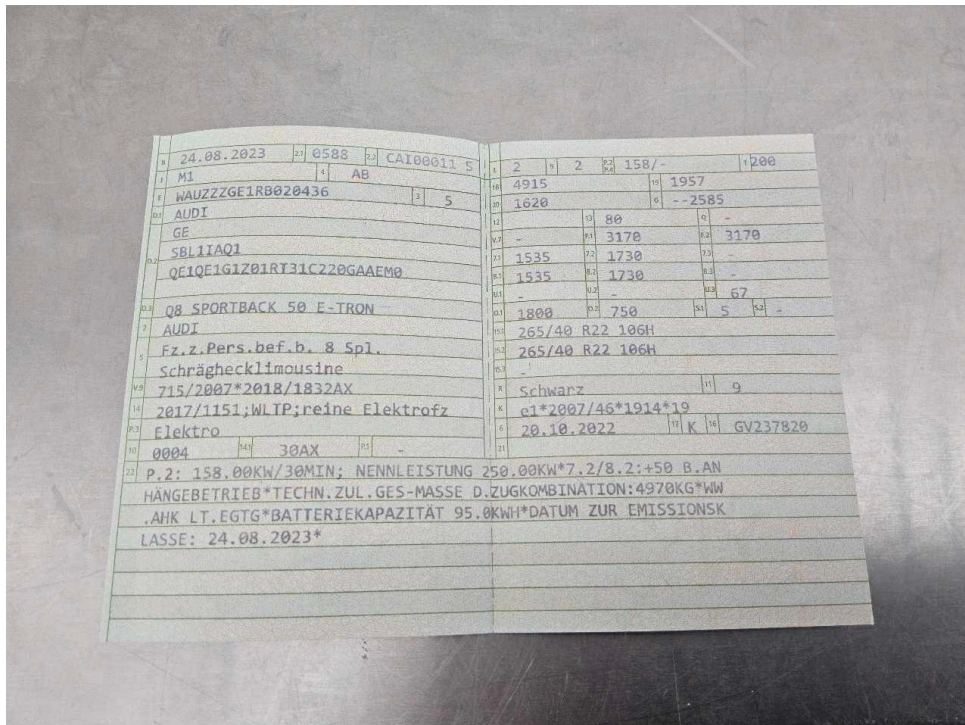 B 24.08.2023 2.1 0588 2.2 CAI00011 5
J M1 4 AB
E WAUZZZGE1RB020436 3 5
D.1 AUDI
D.2 GE
SBL1IAQ1
QE1QE1G1Z01RT31C220GAAEM0
D.3 Q8 SPORTBACK 50 E-TRON
2 AUDI
5 Fz.z.Pers.bef.b. 8 Spl.
Schräghecklimousine
V.9 715/2007*2018/1832AX
14 2017/1151;WLTP;reine Elektrofz
P.3 Elektro
10 0004 14.1 30AX P.5 -
L 2 9 2 P.2 P.4 158/- T 200
18 4915 19 1957
20 1620 G --2585
12 13 80 Q -
V.7 - F.1 3170 F.2 3170
7.1 1535 7.2 1730 7.3 -
8.1 1535 8.2 1730 8.3 -
U.1 - U.2 - U.3 67
O.1 1800 O.2 750 S.1 5 S.2 -
15.1 265/40 R22 106H
15.2 265/40 R22 106H
15.3 -
R Schwarz 11 9
K e1*2007/46*1914*19
6 20.10.2022 17 K 16 GV237820
21
22 P.2: 158.00KW/30MIN; NENNLEISTUNG 250.00KW*7.2/8.2:+50 B.AN
HÄNGEBETRIEB*TECHN.ZUL.GES-MASSE D.ZUGKOMBINATION:4970KG*WW
.AHK LT.EGTG*BATTERIEKAPAZITÄT 95.0KWH*DATUM ZUR EMISSIONSK
LASSE: 24.08.2023*